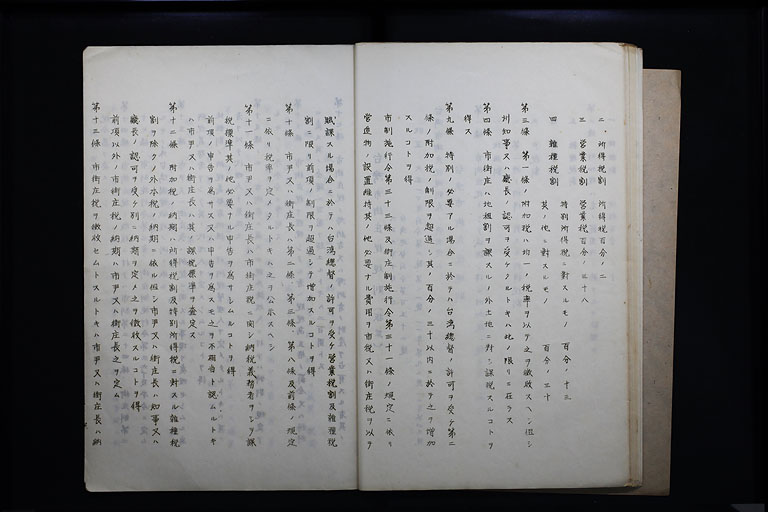 二、所得稅割 所得稅百分ノ二
三 營業稅割 營業稅百分ノ三十八
四 雜種稅割
特別所得稅ニ對スルモノ 百分ノ十三
其ノ他ニ對スルモノ 百分ノ三十
第三條 第一條ノ附加稅ハ均一ノ稅率ヲ以テ之ヲ徵收スヘシ但シ
州知事又ハ廳長ノ認可ヲ受ケタルトキハ此ノ限リニ在ラス
第四條 市街庄ハ地租割ヲ課スルノ外土地ニ對シ課稅スルコトヲ
得ス
第九條 特別ノ必要アル場合ニ於テハ台灣總督ノ許可ヲ受ケ第二
條ノ附加稅ノ制限ヲ超過シ其ノ百分ノ三十以內ニ於テ之ヲ增加
スルコトヲ得
市制施行令第三十三條及街庄制施行令第三十一條ノ規定ニ依リ
營造物ノ設置維持其ノ他必要ナル費用ヲ市稅又ハ街庄稅ヲ以テ
賦課スル場合ニ於テハ台灣總督ノ許可ヲ受ケ營業稅割及雜種稅
割ニ限リ前項ノ制限ヲ超過シテ增加スルコトヲ得
第十條 市尹又ハ街庄長ハ第二條、第三條、第八條及前條ノ規定
ニ依リ稅率ヲ定メタルトキハ之ヲ公示スヘシ
第十一條 市尹又ハ街庄長ハ市街庄稅ニ關シ納稅義務者ヲシテ課
稅標準其ノ他必要ナル申告ヲ爲サシムルコトヲ得
前項ノ申告ヲ爲サス又ハ申告ヲ爲スモ之ヲ不相當ト認ムルトキ
ハ市尹又ハ街庄長ハ其ノ課稅標準ヲ査定ス
第十二條 附加稅ノ納期ハ所得稅割及特別所得稅ニ對スル雜種稅
割ヲ除クノ外本稅ノ納期ニ依ル但シ市尹又ハ街庄長ハ知事又ハ
廳長ノ認可ヲ受ケ別ニ納期ヲ定メ之ヲ徵收スルコトヲ得
前項以外ノ市街庄稅ノ納期ハ市尹又ハ街庄長之ヲ定ム
第十三條 市街庄稅ヲ徵收セムトスルトキハ市尹又ハ街庄長ハ納